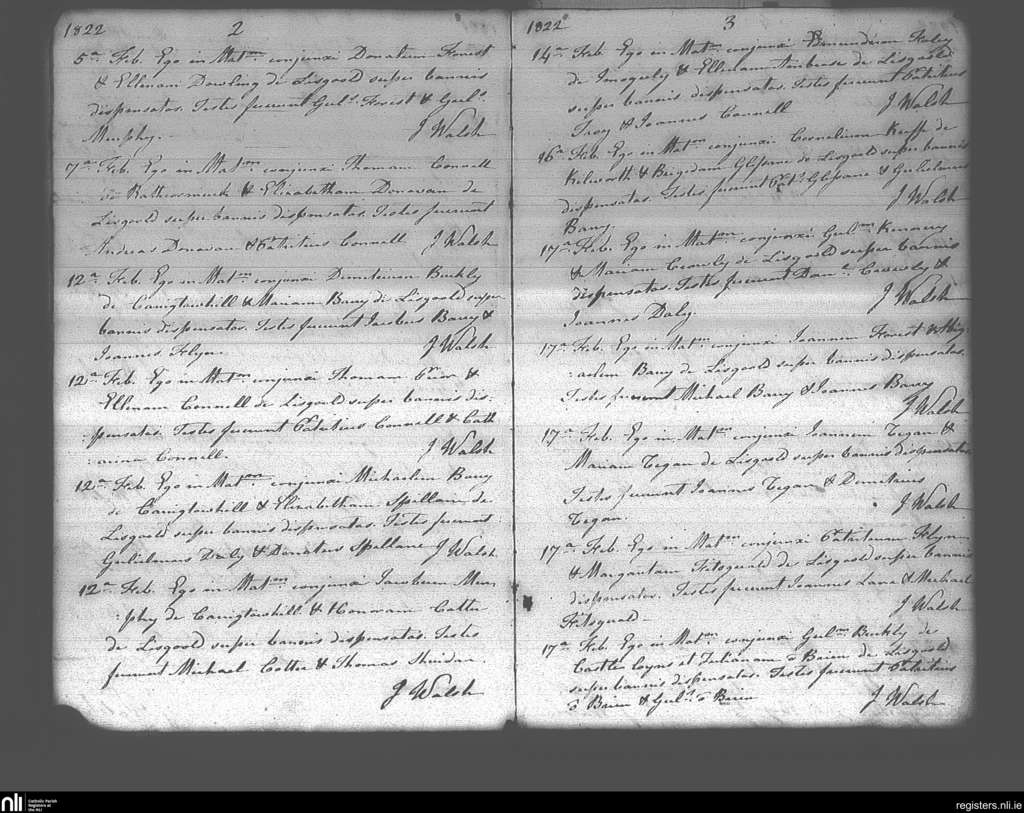 1822 2
5a Feb. Ego in Matm conjunxi Donatum Forest
& Ellenam Dowling de Lisgoold super bannis
dispensatas. Testes fuerunt Guls. Forest & Guls.
Murphy. J Walsh
7a Feb. Ego in Matm conjunxi Thomam Connell
de Rathcormuck & Elizabetham Donovan de
Lisgoold super bannis dispensatas. Testes fuerunt
Andreas Donovan & Patritius Connell J Walsh
12a Feb. Ego in Matm conjunxi Demetrium Buckly
de Carrigtowhill & Mariam Barry de Lisgoold super
bannis dispensatas. Testes fuerunt Jacobus Barry &
Joannes Flyn. J Walsh
12a Feb. Ego in Matm conjunxi Thomam &
Ellenam Connell de Lisgoold super bannis dis-
:pensatas. Testes fuerunt Patritius Connell & Cath
:arina Connell. J Walsh
12a Feb. Ego in Matm conjunxi Michaelem Barry
de Carrigtowhill & Elizabetham Spillane de
Lisgoold super bannis dispensatas. Testes fuerunt
Gulielmus Daly & Demetrius Spillane J Walsh
12a Feb. Ego in Matm conjunxi Jacobum Mur
:phy de Carrigtowhill & Honoram Cotter
de Lisgoold super bannis dispensatas. Testes
fuerunt Michael Cotter & Thomas Sheidan.
J Walsh
1822 3
14a Feb. Ego in Matm conjunxi Haly
de Imogeely & Ellenam Ambrose de Lisgoold
super bannis dispensatas. Testes fuerunt Patritius
Troy & Joannes Connell J Walsh
16a Feb. Ego in Matm conjunxi Cornelium Keeffe de
Kilworth & Brigidam Glissane de Lisgoold super bannis
dispensatas. Testes fuerunt Patk. Glissane & Gulielmus
Barry. J Walsh
17a Feb. Ego in Matm conjunxi Gulm Kenavy
& Mariam Crowly de Lisgoold super bannis
dispensatas. Testes fuerunt Danl. Crowly &
Joannes Daly. J Walsh
17a Feb. Ego in Matm conjunxi Joannem Forrest & Mig:
:aelem Barry de Lisgoold super bannis dispensatas.
Testes fuerunt Michael Barry & Joannes Barry
J Walsh
17a Feb. Ego in Matm conjunxi Joannem Tegan &
Mariam Tegan de Lisgoold super bannis dispensatas
Testes fuerunt Joannes Tegan & Demetrius
Tegan. J Walsh
17a Feb. Ego in Matm conjunxi Patritium Flynn
& Margaritam Fitsgerald de Lisgoold super bannis
dispensatas. Testes fuerunt Joannes Lane & Michael
Fitsgerald. J Walsh
17a Feb. Ego in Matm conjunxi Gulm Buckly de
Castle Lyons et Julianam o Brien de Lisgoold
super bannis dispensatas. Testes fuerunt Patritius
o Brien & Guls. o Brien J Walsh
nli Catholic Parish
Registers at
the NLI
registers.nli.ie